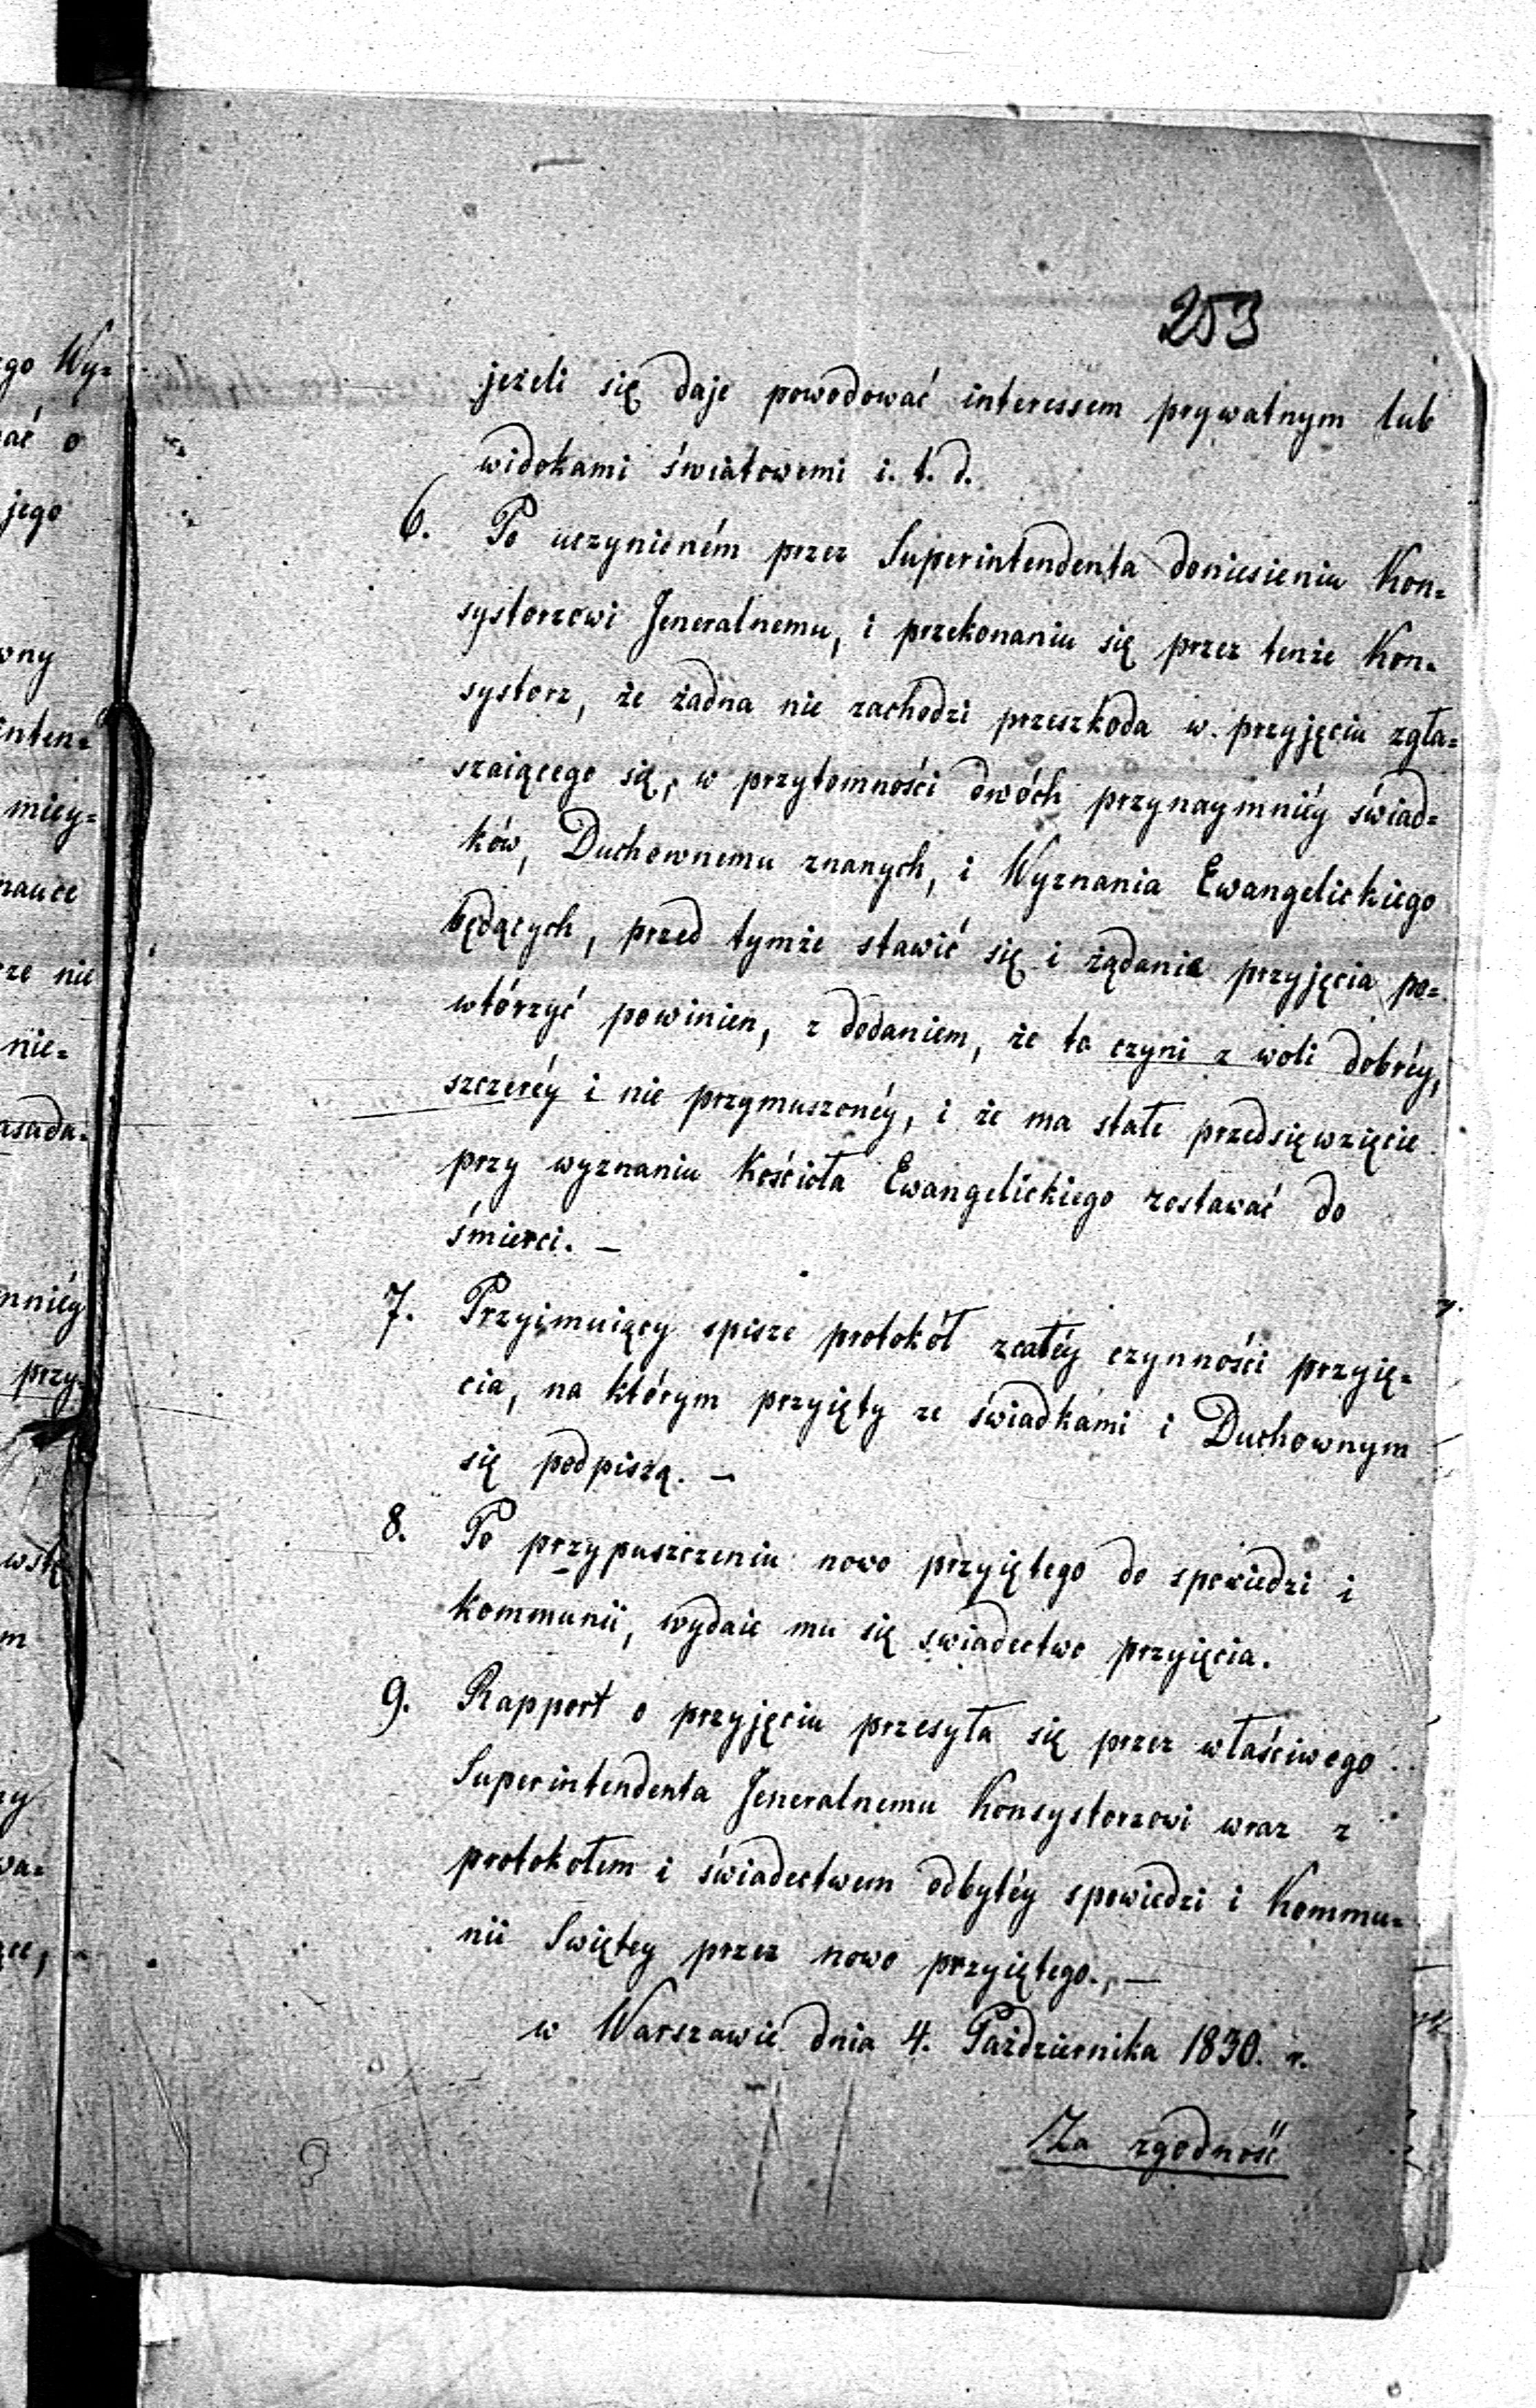 253
jeżeli się daje powodować interessem prywatnym lub
widokami światowemi i. t. d.
6. Po uczynioném przez Superintendenta doniesieniu Kon=
systorzowi Jeneralnemu, i przekonaniu się przez tenże Kon=
systorz, że żadna nie zachodzi przeszkoda w przyjęciu zgła=
szaiącego się, w przytomności dwóch przynaymniéy świad=
ków, Duchownemu znanych, i Wyznania Ewangelickiego
będących, przed tymże stawić się i żądanie przyjęcia po=
wtórzyć powinien, z dodaniem, że to czyni z woli dobréy,
szczeréy i nie przymuszonéy, i że ma stałe przedsięwzięcie
przy wyznaniu Kościoła Ewangelickiego zostawać do
śmierci. —
7. Przyimuiący spisze protokół zcałéy czynności przyię=
cia, na którym przyięty ze świadkami i Duchownym
się podpiszą. —
8. Po przypuszczeniu nowo przyiętego do spowiedzi i
kommunii, wydaie mu się swiadectwo przyięcia.
9. Rapport o przyjęciu przesyła się przez właściwego
Superintendenta Jeneralnemu Konsystorzowi wraz z
protokołem i świadectwem odbytéy spowiedzi i Kommu=
nii Swiętey przez nowo przyiętego., —
w Warszawie dnia 4. Października 1830. r.
Za zgodność
go Wy=
ać o
jego
wny
inten=
miey=
nauce
ze nie
nie=
asada=
mniéy
przy=
wstę
m
wa=